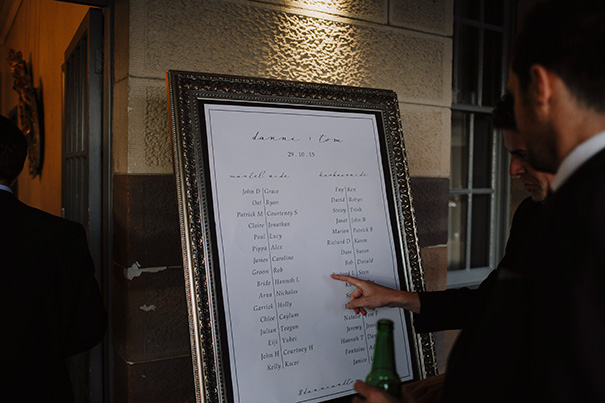 danni + tom
29 . 10 . 15
mantel side
harbour side
John D | Grace
Oat | Ryan
Patrick M | Courtney S
Claire | Jonathan
Paul | Lucy
Pippa | Alex
James | Caroline
Groom | Rob
Bride | Hannah L
Arna | Nicholas
Garrick | Holly
Chloe | Caylum
Julian | Teegan
Eiji | Yuhei
John H | Courtney H
Kelly | Kacer
Fay | Ken
David | Robyn
Stacey | Trish
Janet | John B
Marion | Patrick B
Richard D | Karen
Dave | Susan
Bob | Donald
Sten
Natalie
Jeremy
Hannah T
Fontaine
Janice